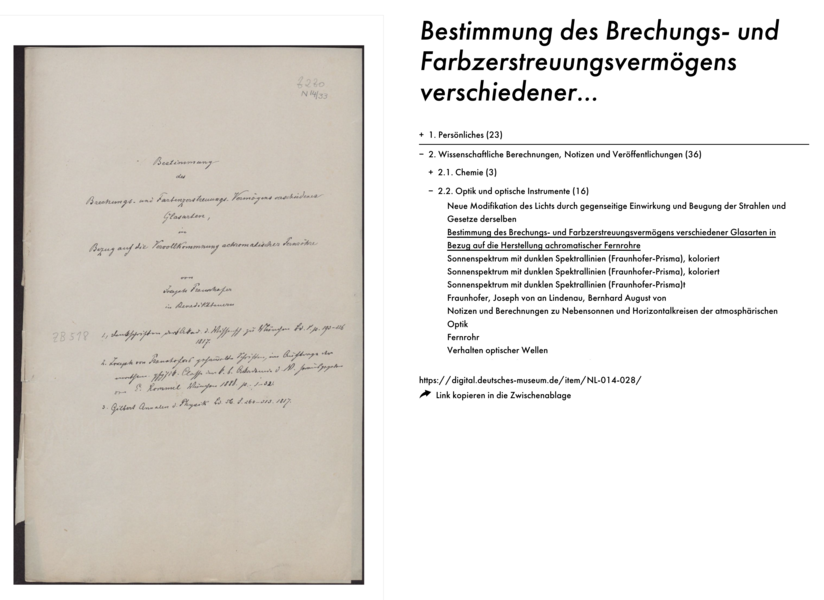 3230
N 14/33
Bestimmung
des
Brechungs- und Farbenzerstreuungs-Vermögens verschiedener
Glasarten,
in
Bezug auf die Vervollkommnung achromatischer Fernröhre.
von
Joseph Fraunhofer
in Benedictbeuern
1817
München 1888. p. 1-31.
3. Gilbert Annalen d. Physik Bd 56 1817.
Bestimmung des Brechungs- und
Farbzerstreuungsvermögens
verschiedener...
+ 1. Persönliches (23)
– 2. Wissenschaftliche Berechnungen, Notizen und Veröffentlichungen (36)
+ 2.1. Chemie (3)
– 2.2. Optik und optische Instrumente (16)
Neue Modifikation des Lichts durch gegenseitige Einwirkung und Beugung der Strahlen und
Gesetze derselben
Bestimmung des Brechungs- und Farbzerstreuungsvermögens verschiedener Glasarten in
Bezug auf die Herstellung achromatischer Fernrohre
Sonnenspektrum mit dunklen Spektrallinien (Fraunhofer-Prisma), koloriert
Sonnenspektrum mit dunklen Spektrallinien (Fraunhofer-Prisma), koloriert
Sonnenspektrum mit dunklen Spektrallinien (Fraunhofer-Prisma)t
Fraunhofer, Joseph von an Lindenau, Bernhard August von
Notizen und Berechnungen zu Nebensonnen und Horizontalkreisen der atmosphärischen
Optik
Fernrohr
Verhalten optischer Wellen
https://digital.deutsches-museum.de/item/NL-014-028/
Link kopieren in die Zwischenablage